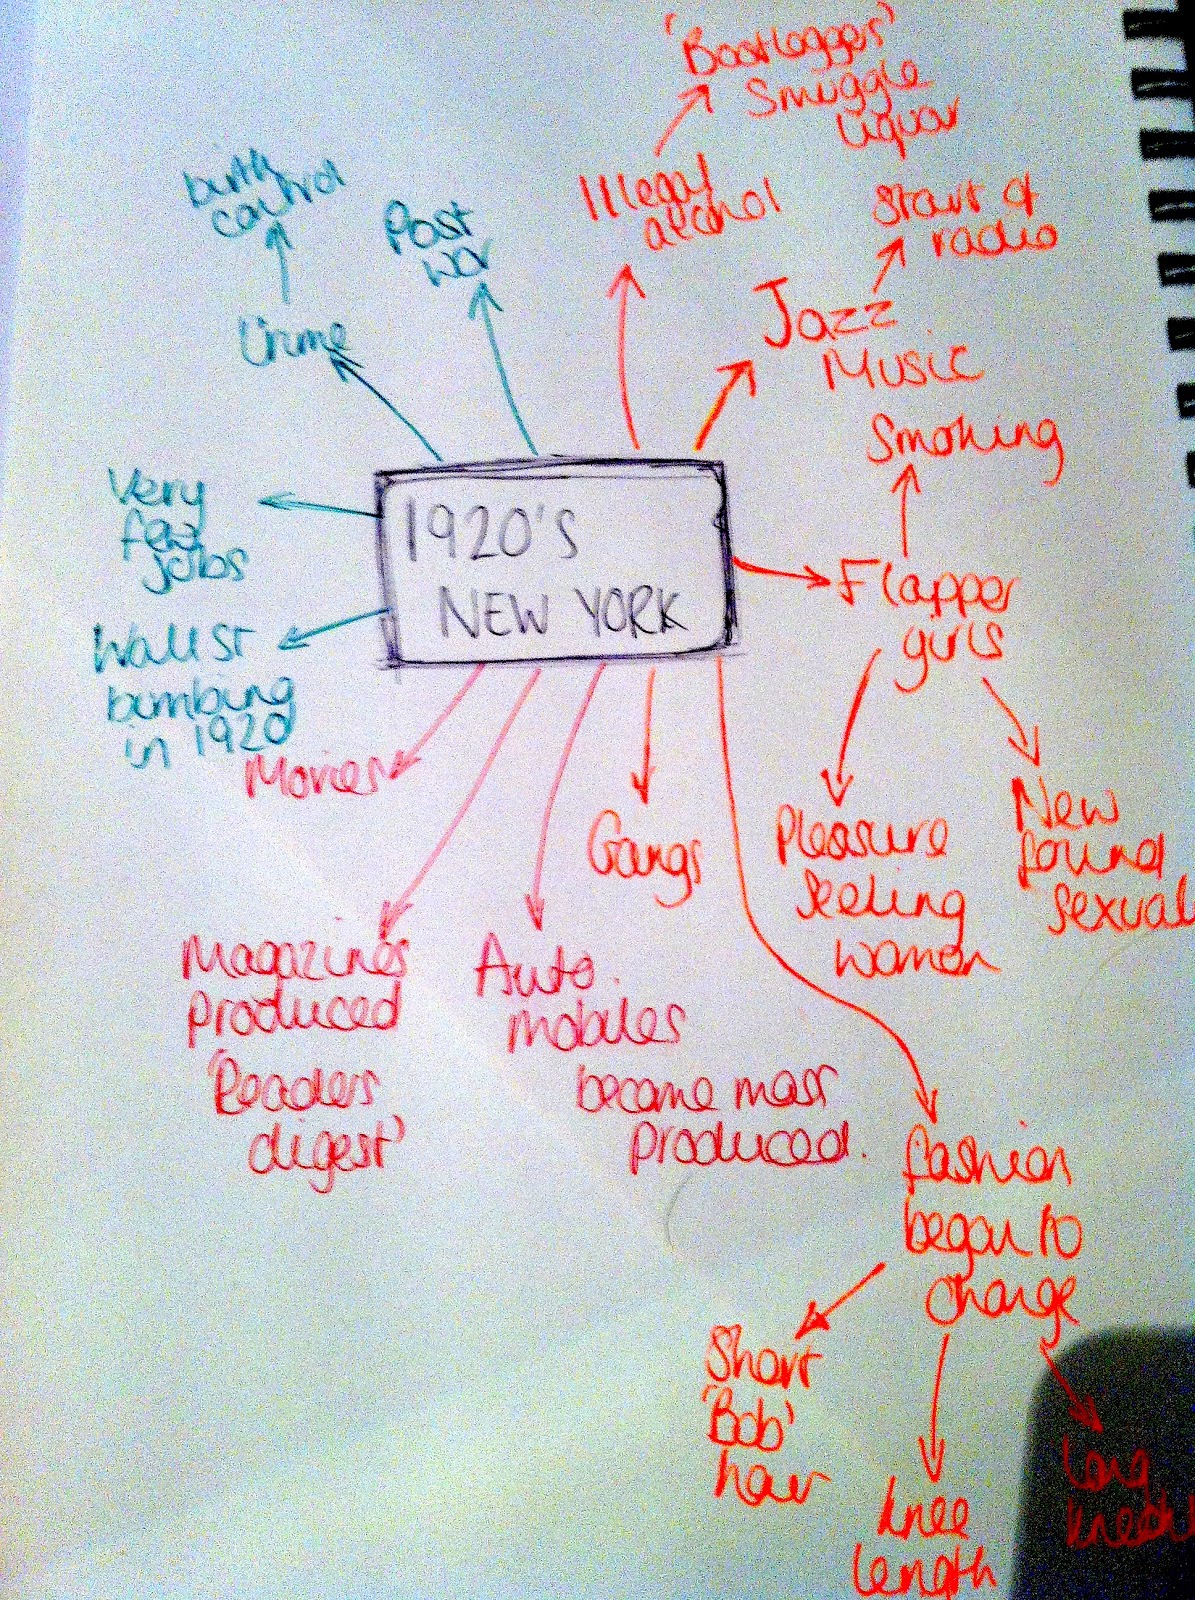 'Bootleggers'
Smuggle
liquor
Illegal
alcohol
Start of
radio
Jazz
Music
birth
control
Crime
Post
war
Smoking
1920'S
NEW YORK
Very
few
jobs
Wall St
bumbing
in 1920
Flapper
girls
Pleasure
seeking
women
New
found
sexual
Movies
Gangs
Magazines
produced
'Readers
digest'
Auto.
mobiles
became mass
produced.
fashion
began to
change
Short
'Bob'
hair
knee
length
Long